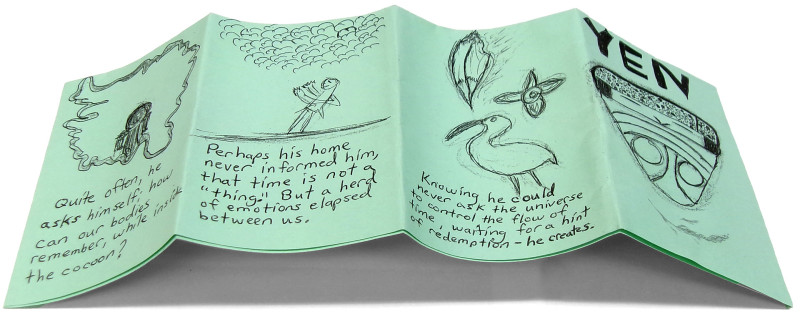 Quite often, he
asks himself, how
can our bodies
remember, while inside
the cocoon?
Perhaps his home
never informed him,
that time is not a
"thing." But a herd
of emotions elapsed
between us.
Knowing he could
never ask the universe
to control the flow of
time, waiting for a hint
of redemption - he creates.
YEN